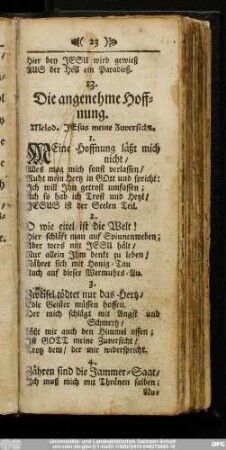 ( 23 )
Hier bey JESU wird gewieß
AUS der Höll ein Paradieß.
13.
Die angenehme Hoff-
nung.
Melod. JEsus meine Zuversicht.
1.
MEine Hoffnung läßt mich
nicht/
Alles mag mich sonst verlassen/
Ruht mein Hertz in GOtt und spricht:
Ich will Ihn getrost umfassen;
Ach so hab ich Trost und Heyl/
JESUS ist der Seelen Teil.
2.
O wie eitel ist die Welt!
Hier schläft man auf Spinnenweben;
Aber wers mit JESU hält/
Nur allein Ihm denkt zu leben/
Nähret sich mit Honig-Tau
Auch auf dieser Wermuths-Au.
3.
Zweifel tödtet nur das Hertz/
Edle Geister müssen hoffen.
Der mich schlägt mit Angst und
Schmertz/
Läßt mir auch den Himmel offen;
Ist GOTT meine Zuversicht/
Trotz dem/ der mir widerspricht.
4.
Zähren sind die Jammer-Saat/
Ich muß mich mit Thränen salben;